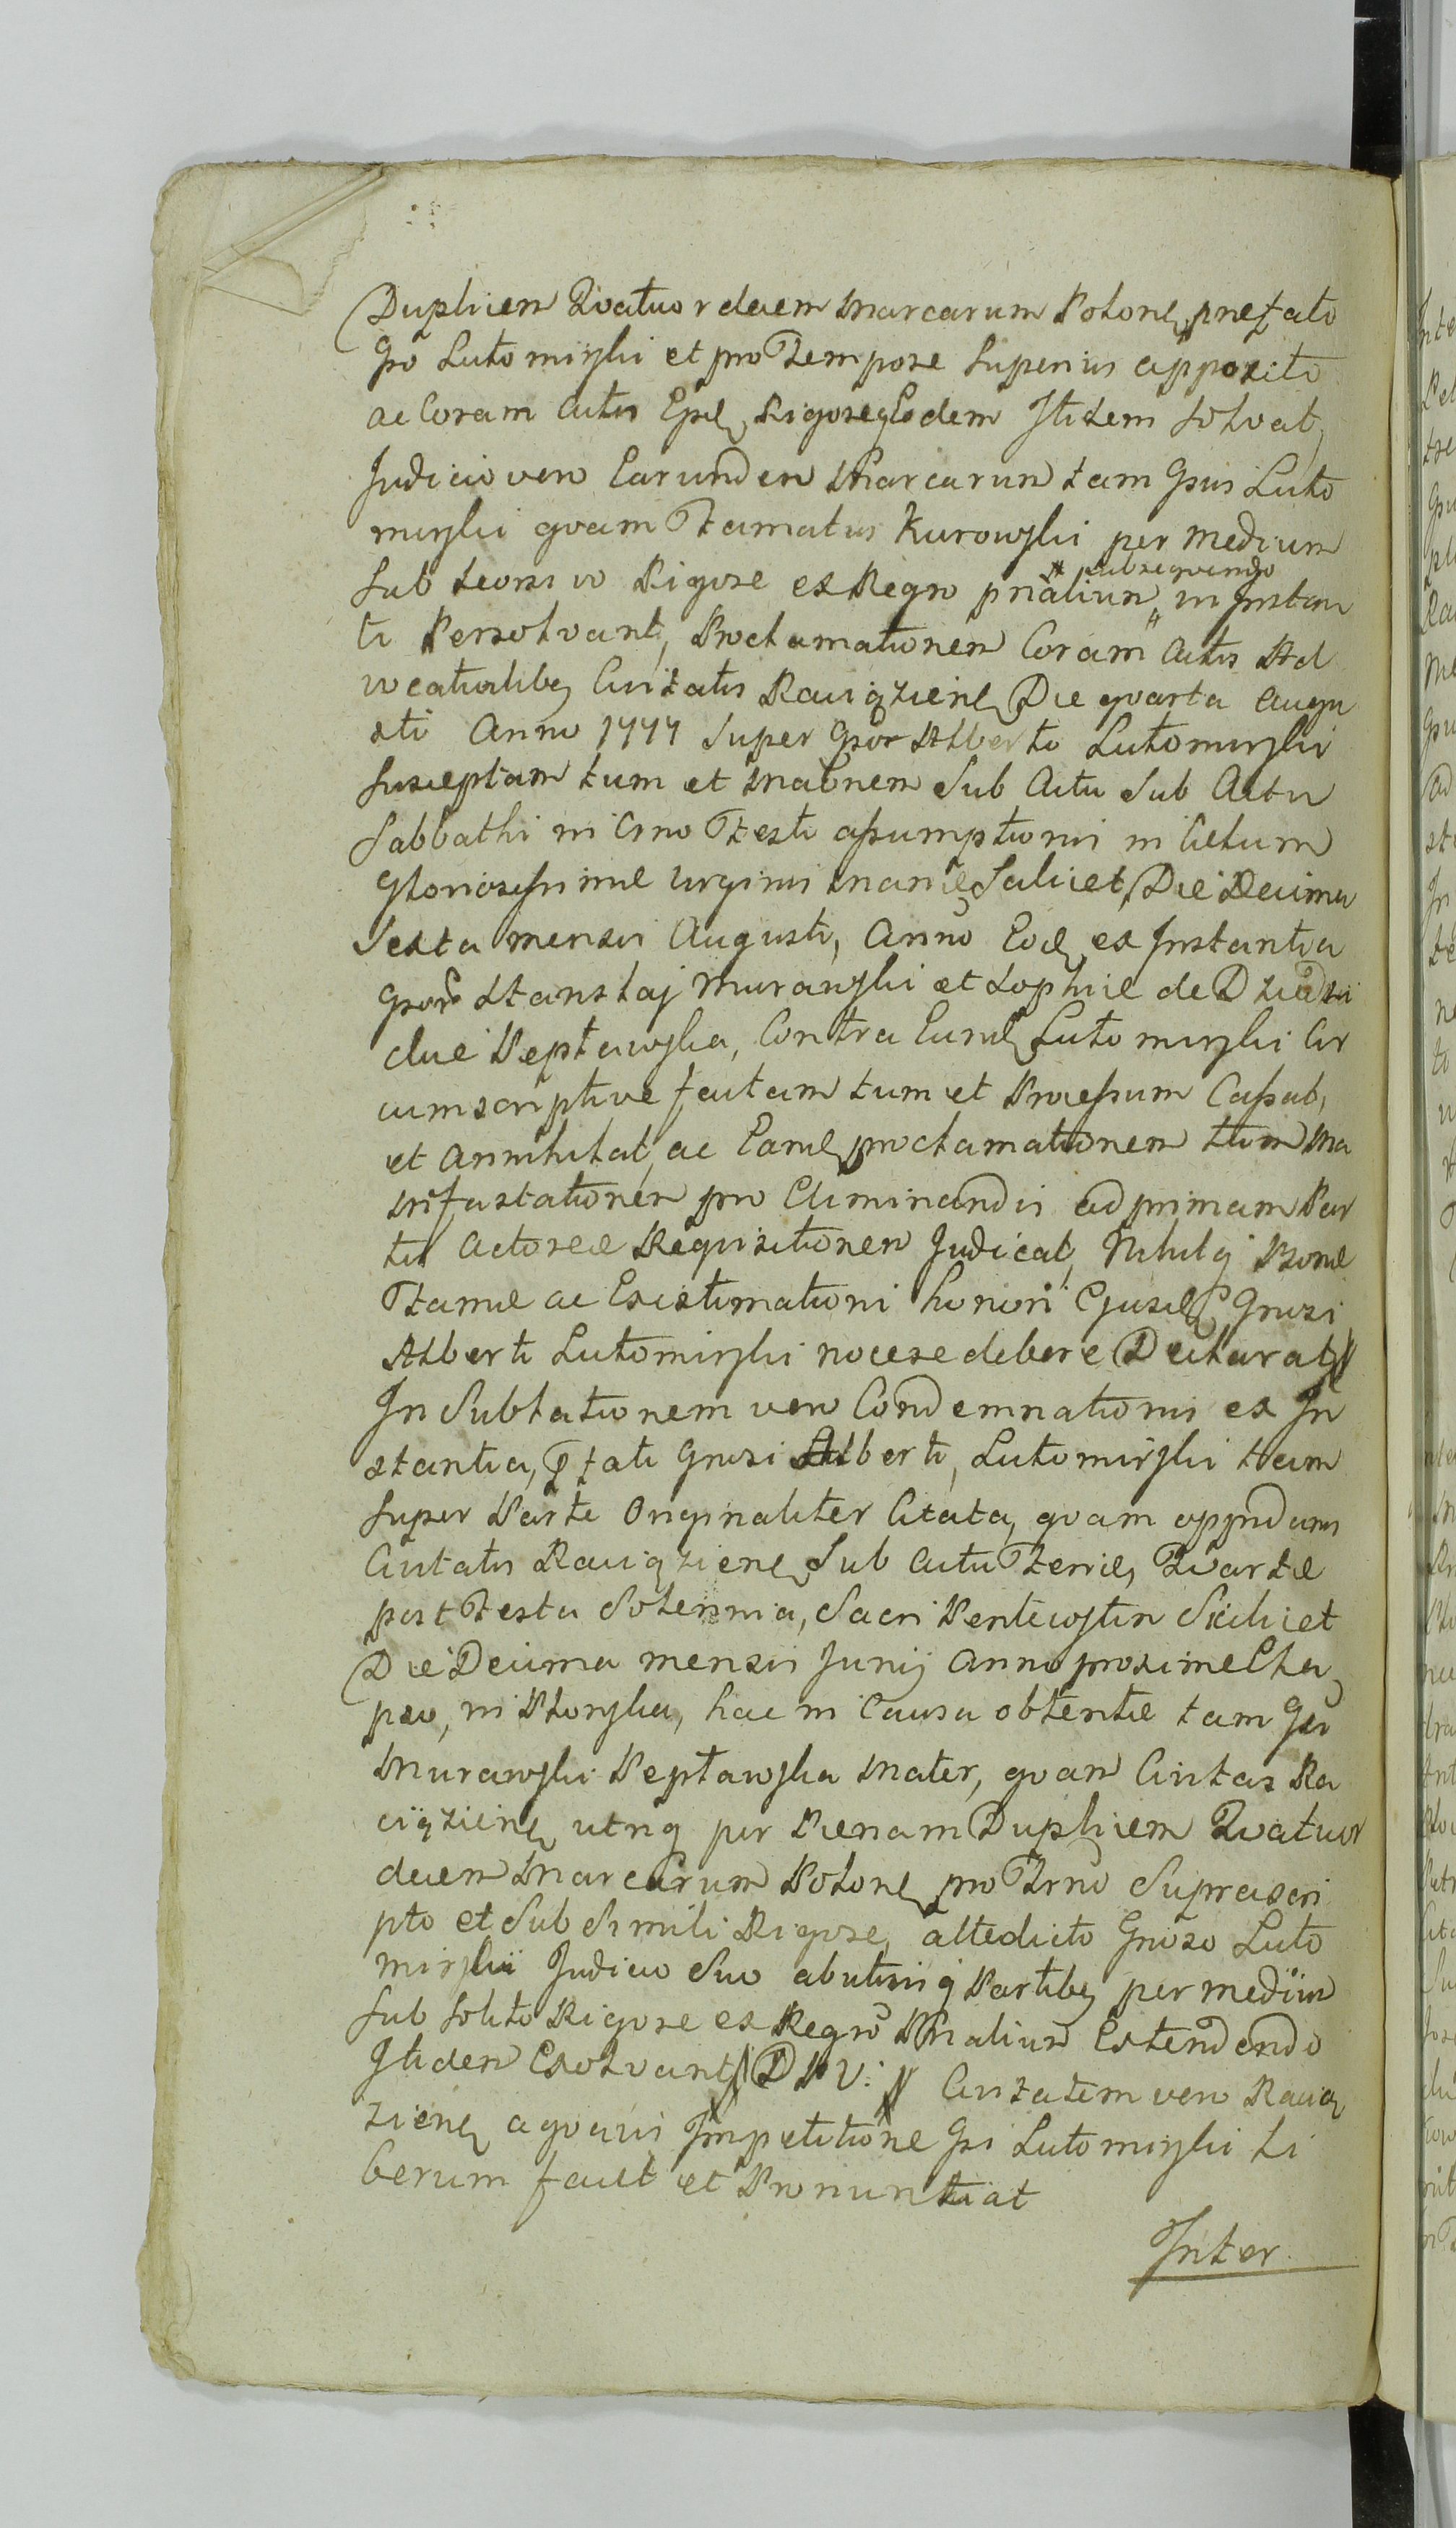 Duplicem Quatuordecem Marcarum Polonę prefato
Gso Lutomirski et pro Tempore Superius apposito
ac Coram Actis Ejsdę Rigoreq Eodem Itidem solvat,
Judicio vero Earundem Marcarum tam Gsus Luto
mirski qvam Famatus Kurowski per Medium
sub seorsivo Rigore ex Regro pñaliun # subseqvendo in Instan
ti Persolvant, Proclamationem Coram Actis Ad
vocatialibq Civitatis Raciązienę Die qvarta Augu
sti Anno 1777 Super Gsor Alberto Lutomirski
susceptam tum et Mañonem Sub Actu Sub Actu
Sabbathi in Crno Festi assumptionis in Cœlum
Gloriosissimæ Virginis Mariæ Scilicet, Die Decima
Sexta mensis Augusti, Anno Eodę ex Instantia
Gsor Stanslaj Murawski et Sophiæ de Dziedzi
cluæ Peptawska, Contra Eundę Lutomirski Cir
cumscriptive factam tum et Processum Cassat,
et Annihilat, ac Eandę proclamationem tum Ma
nifastationem pro Eliminandis ad primam Par
tis Actoreæ Reqvisitionem Judicat, Nihilq Bonæ
Famæ ac Existimationi honori Ejusdę Gnrosi
Alberti Lutomirski nocere debere Declarat //
In Sublationem vero Condemnationis ex In
stantia, Pfati Gnrosi Alberti, Lutomirski tam
super Parte Originaliter Citata, qvam oppndum
Civitatis Raciązienę Sub Actu Feriæ, Qvartæ
post Festa Solennia, Sacri Pentecosten Scilicet
Die Decima mensis Junij Anno proxime Ela
pso, in Plonska, hac in Causa obtentæ tam Gsi
Murawski Peptawska Mater, qvam Civitas Ra
ciązienę utrnq per Pœnam Duplicem Qvatuor
decem Marcarum Polonę pro Trno Suprascri
pto et Sub Simili Rigore, altedicto Gnroso Luto
mirskii Judicio Suo abutiniq Partibq per mediũm
sub solito Rigore ex Regro Pñaliun Extendendo
Itidem Exolvant // D P V: // Civitatem vero Raciąż
zienę a qvavis Impetitione Gsi Lutomirski li
berum facit et Pronuntiat
Inter